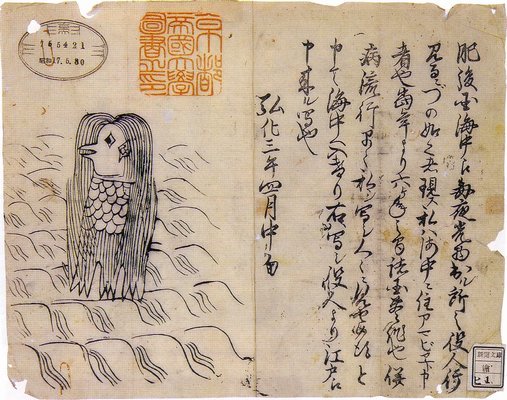 肥後国海中え毎夜光物出ル所之役人行
見るニづの如く者現ス私ハ海中ニ住アマビヱト申
者也當年より六ヶ年之間諸国豊作也併
病流行早々私シ写シ人々ニ見セ候得と
申て海中へ入けり右写シ役人より江戸え
申来ル写也
弘化三年四月中旬
京都
帝國大學
圖書之印
165421
昭和17.5.30